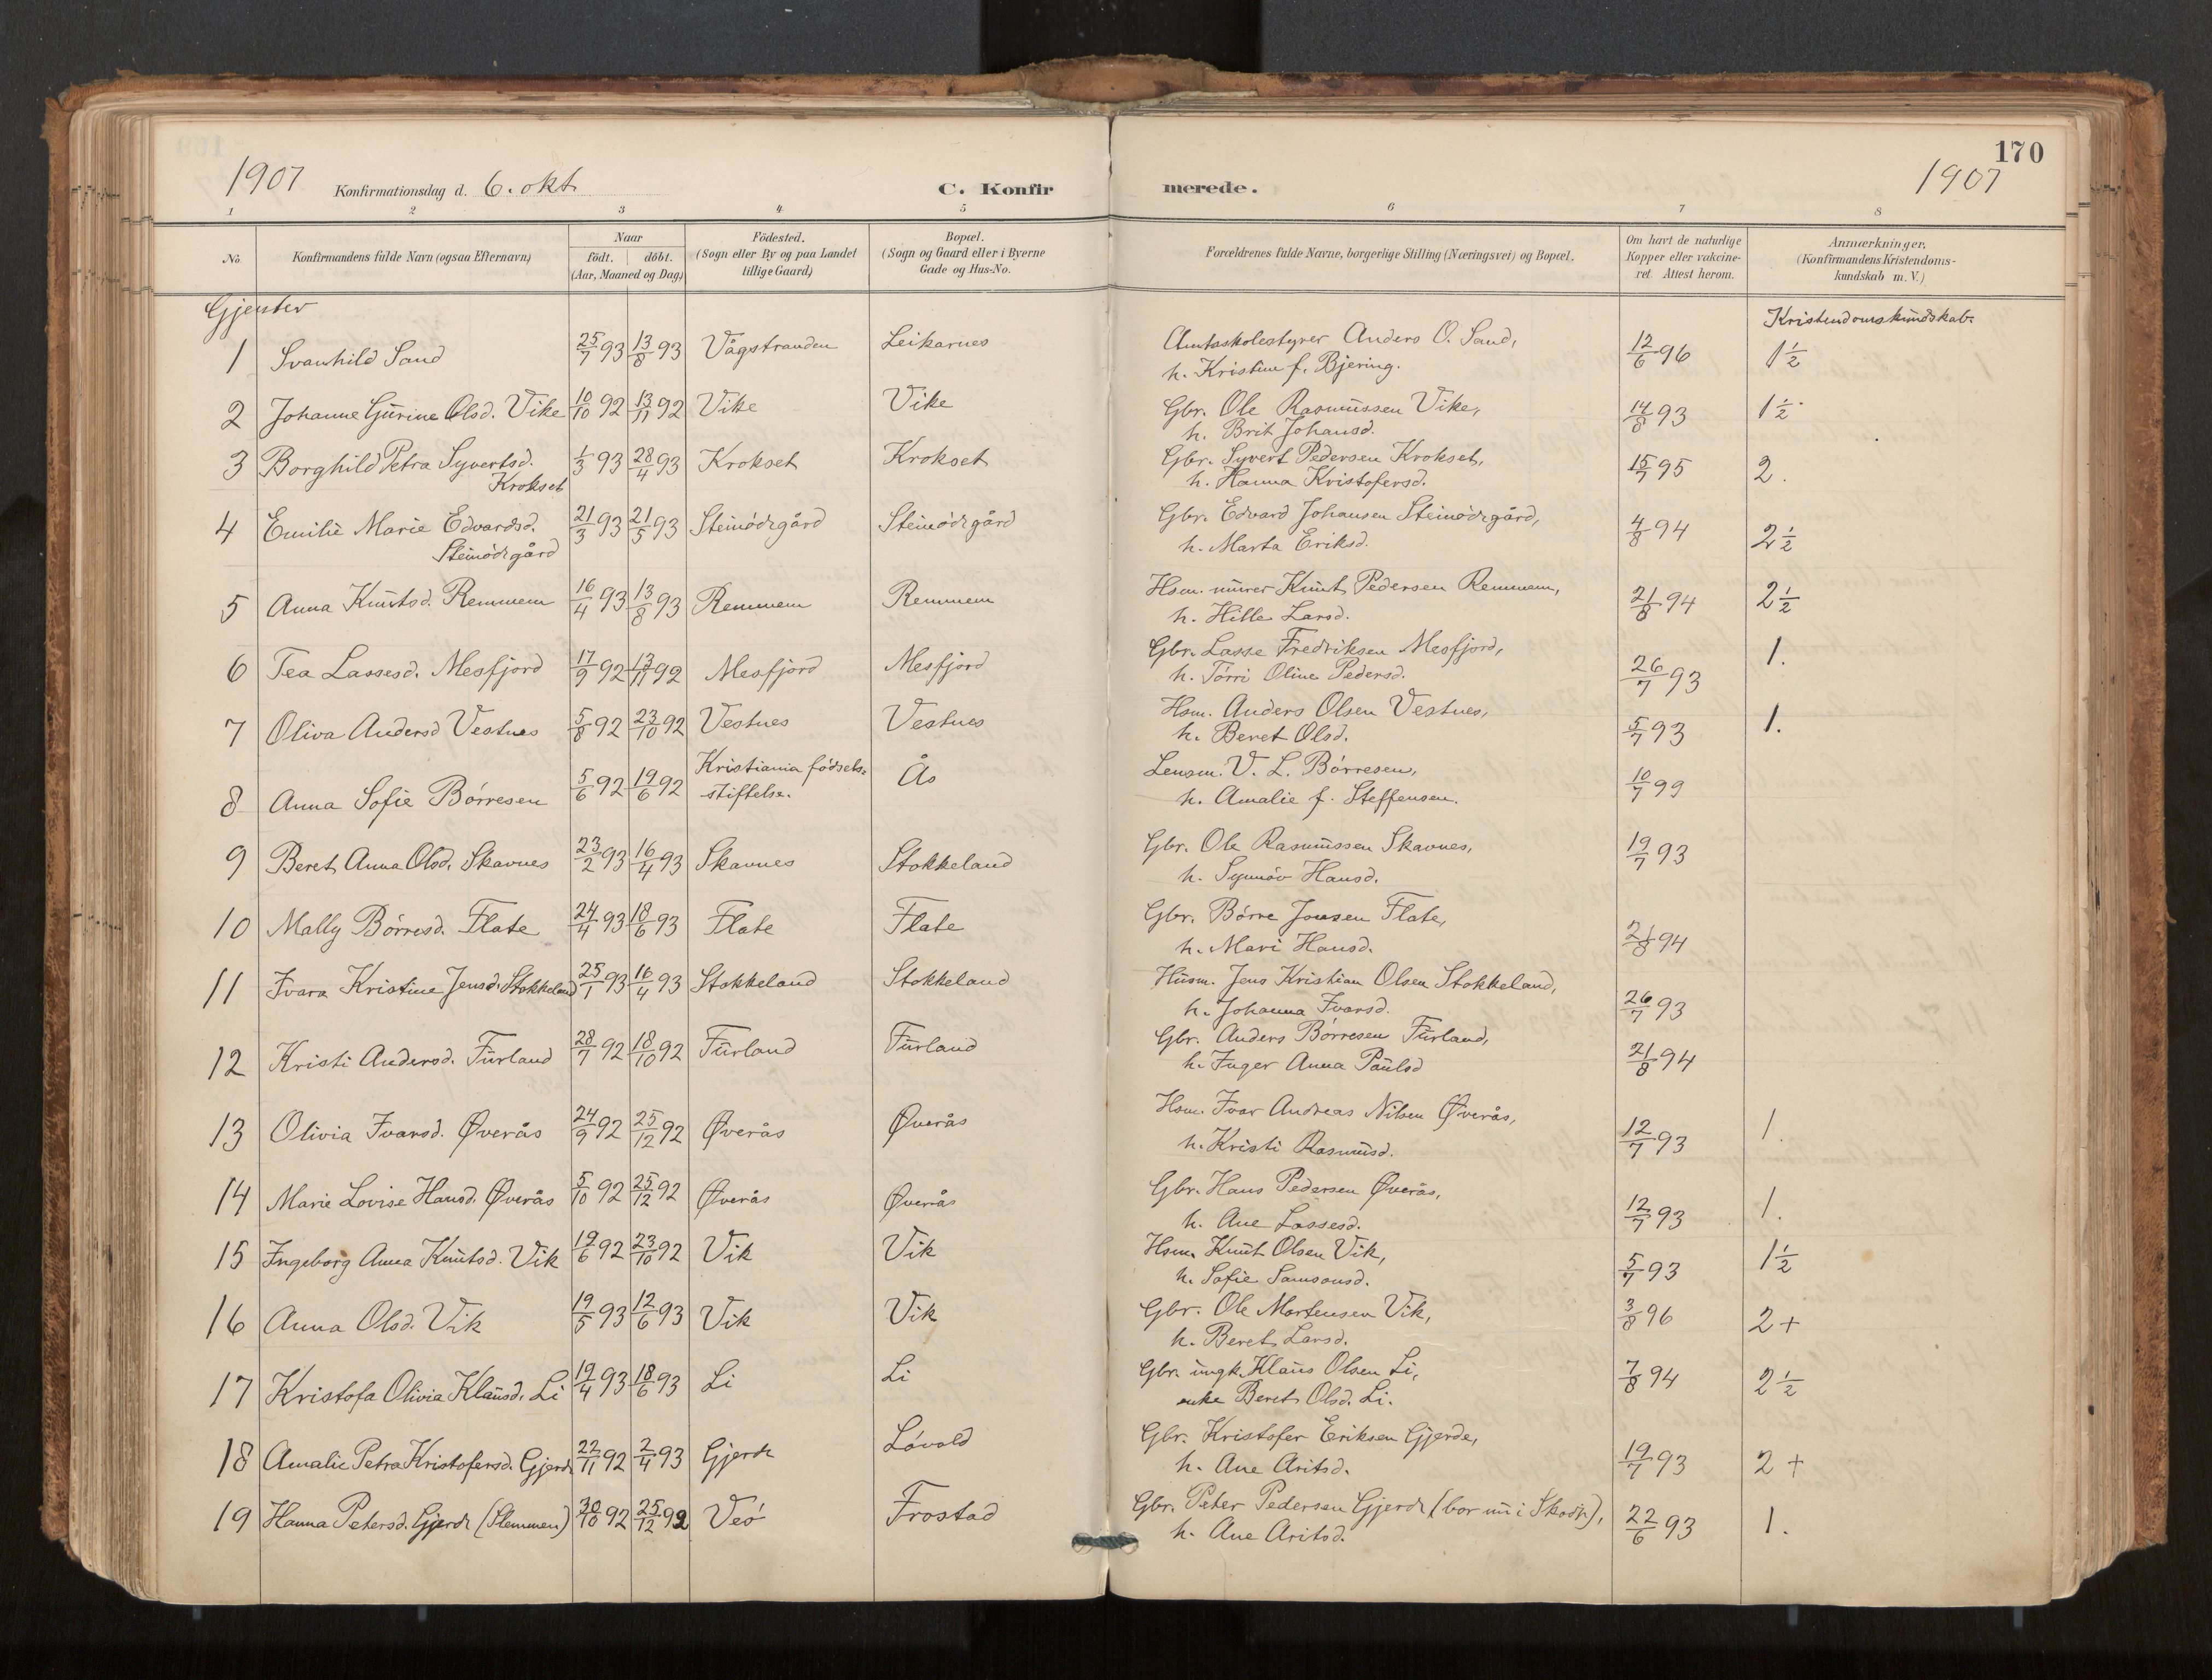 170
1907 Konfirmationsdag d. 6. okt. C. Konfirmerede. 1907
1 2 3 4 5 6 7 8
No. Konfirmandens fulde Navn (ogsaa Efternavn) Naar födt. döbt. (Aar, Maaned og Dag) Födested. (Sogn eller By og paa Landet tillige Gaard) Bopæl. (Sogn og Gaard eller i Byerne Gade og Hus-No. Forældrenes fulde Navne, borgerlige Stilling (Næringsvei) og Bopæl. Om havt de naturlige Kopper eller vakcineret. Attest herom. Anmærkninger. (Konfirmandens Kristendomskundskab m. V.)
Gjenter Kristendomskundskab.
1 Svanhild Sand 25/7 93 13/8 93 Vågstranden Leikarnes Amtsskolestyrer Anders O. Sand, 12/6 96 1 1/2
h. Kristine f. Bjering.
2 Johanne Gurine Olsd. Vike 10/10 92 13/11 92 Vike Vike Gbr. Ole Rasmussen Vike, 14/8 93 1 1/2
h. Brit Johansd.
3 Borghild Petra Syvertsd. 1/3 93 28/4 93 Krokset Krokset Gbr. Syvert Pedersen Krokset, 15/7 95 2.
Krokset h. Hanna Kristofersd.
4 Emilie Marie Edvardsd. 21/3 93 21/5 93 Steinödegård Steinödegård Gbr. Edvard Johansen Steinödegård, 4/8 94 2 1/2
Steinödegård h. Marta Eriksd.
5 Anna Knutsd. Remmem 16/4 93 13/8 93 Remmem Remmem Hsm. murer Knut Pedersen Remmem, 21/8 94 2 1/2
h. Hille Larsd.
6 Tea Lassesd. Mesfjord 17/9 92 13/11 92 Mesfjord Mesfjord Gbr. Lasse Fredriksen Mesfjord, 26/7 93 1.
h. Törri Oline Pedersd.
7 Oliva Andersd Vestnes 5/8 92 23/10 92 Vestnes Vestnes Hsm. Anders Olsen Vestnes, 5/7 93 1.
h. Beret Olsd.
8 Anna Sofie Börresen 5/6 92 19/6 92 Kristiania fødselsstiftelse. Ås Lensm. V. L. Börresen, 10/7 99
h. Amalie f. Steffensen.
9 Beret Anna Olsd. Skavnes 23/2 93 16/4 93 Skavnes Stokkeland Gbr. Ole Rasmussen Skavnes, 19/7 93
h. Synnöv Hansd.
10 Mally Börresd. Flate 24/4 93 18/6 93 Flate Flate Gbr. Börre Jonsen Flate, 21/8 94
h. Mari Hansd.
11 Ivara Kristine Jensd. Stokkeland 25/1 93 16/4 93 Stokkeland Stokkeland Husm. Jens Kristian Olsen Stokkeland, 26/7 93
h. Johanna Ivarsd.
12 Kristi Andersd. Furland 28/7 92 18/10 92 Furland Furland Gbr. Anders Börresen Furland, 21/8 94
h. Inger Anna Paulsd
13 Olivia Ivarsd. Øverås 24/9 92 25/12 92 Øverås Øverås Hsm. Ivar Andreas Nilsen Øverås, 12/7 93 1.
h. Kristi Rasmusd.
14 Marie Lovise Hansd. Øverås 5/10 92 25/12 92 Øverås Øverås Gbr. Hans Pedersen Øverås, 12/7 93 1.
h. Ane Lassesd.
15 Ingeborg Anna Knutsd. Vik 19/6 92 23/10 92 Vik Vik Hsm. Knut Olsen Vik, 5/7 93 1 1/2
h. Sofie Samsonsd.
16 Anna Olsd. Vik 19/5 93 12/6 93 Vik Vik Gbr. Ole Mortensen Vik, 3/8 96 2+
h. Beret Larsd.
17 Kristofa Olivia Klausd. Li 19/4 93 18/6 93 Li Li Gbr. ungk. Klaus Olsen Li, 7/8 94 2 1/2
enke Beret Olsd. Li.
18 Amalie Petra Kristofersd. Gjerde 22/11 92 2/4 93 Gjerde Lövold Gbr. Kristofer Eriksen Gjerde, 19/7 93 2+
h. Ane Aritsd.
19 Hanna Petersd. Gjerde (Slemmen) 30/10 92 25/12 92 Veö Frostad Gbr. Peter Pedersen Gjerde (bor nu i Skodje), 22/6 93 1.
h. Ane Aritsd.